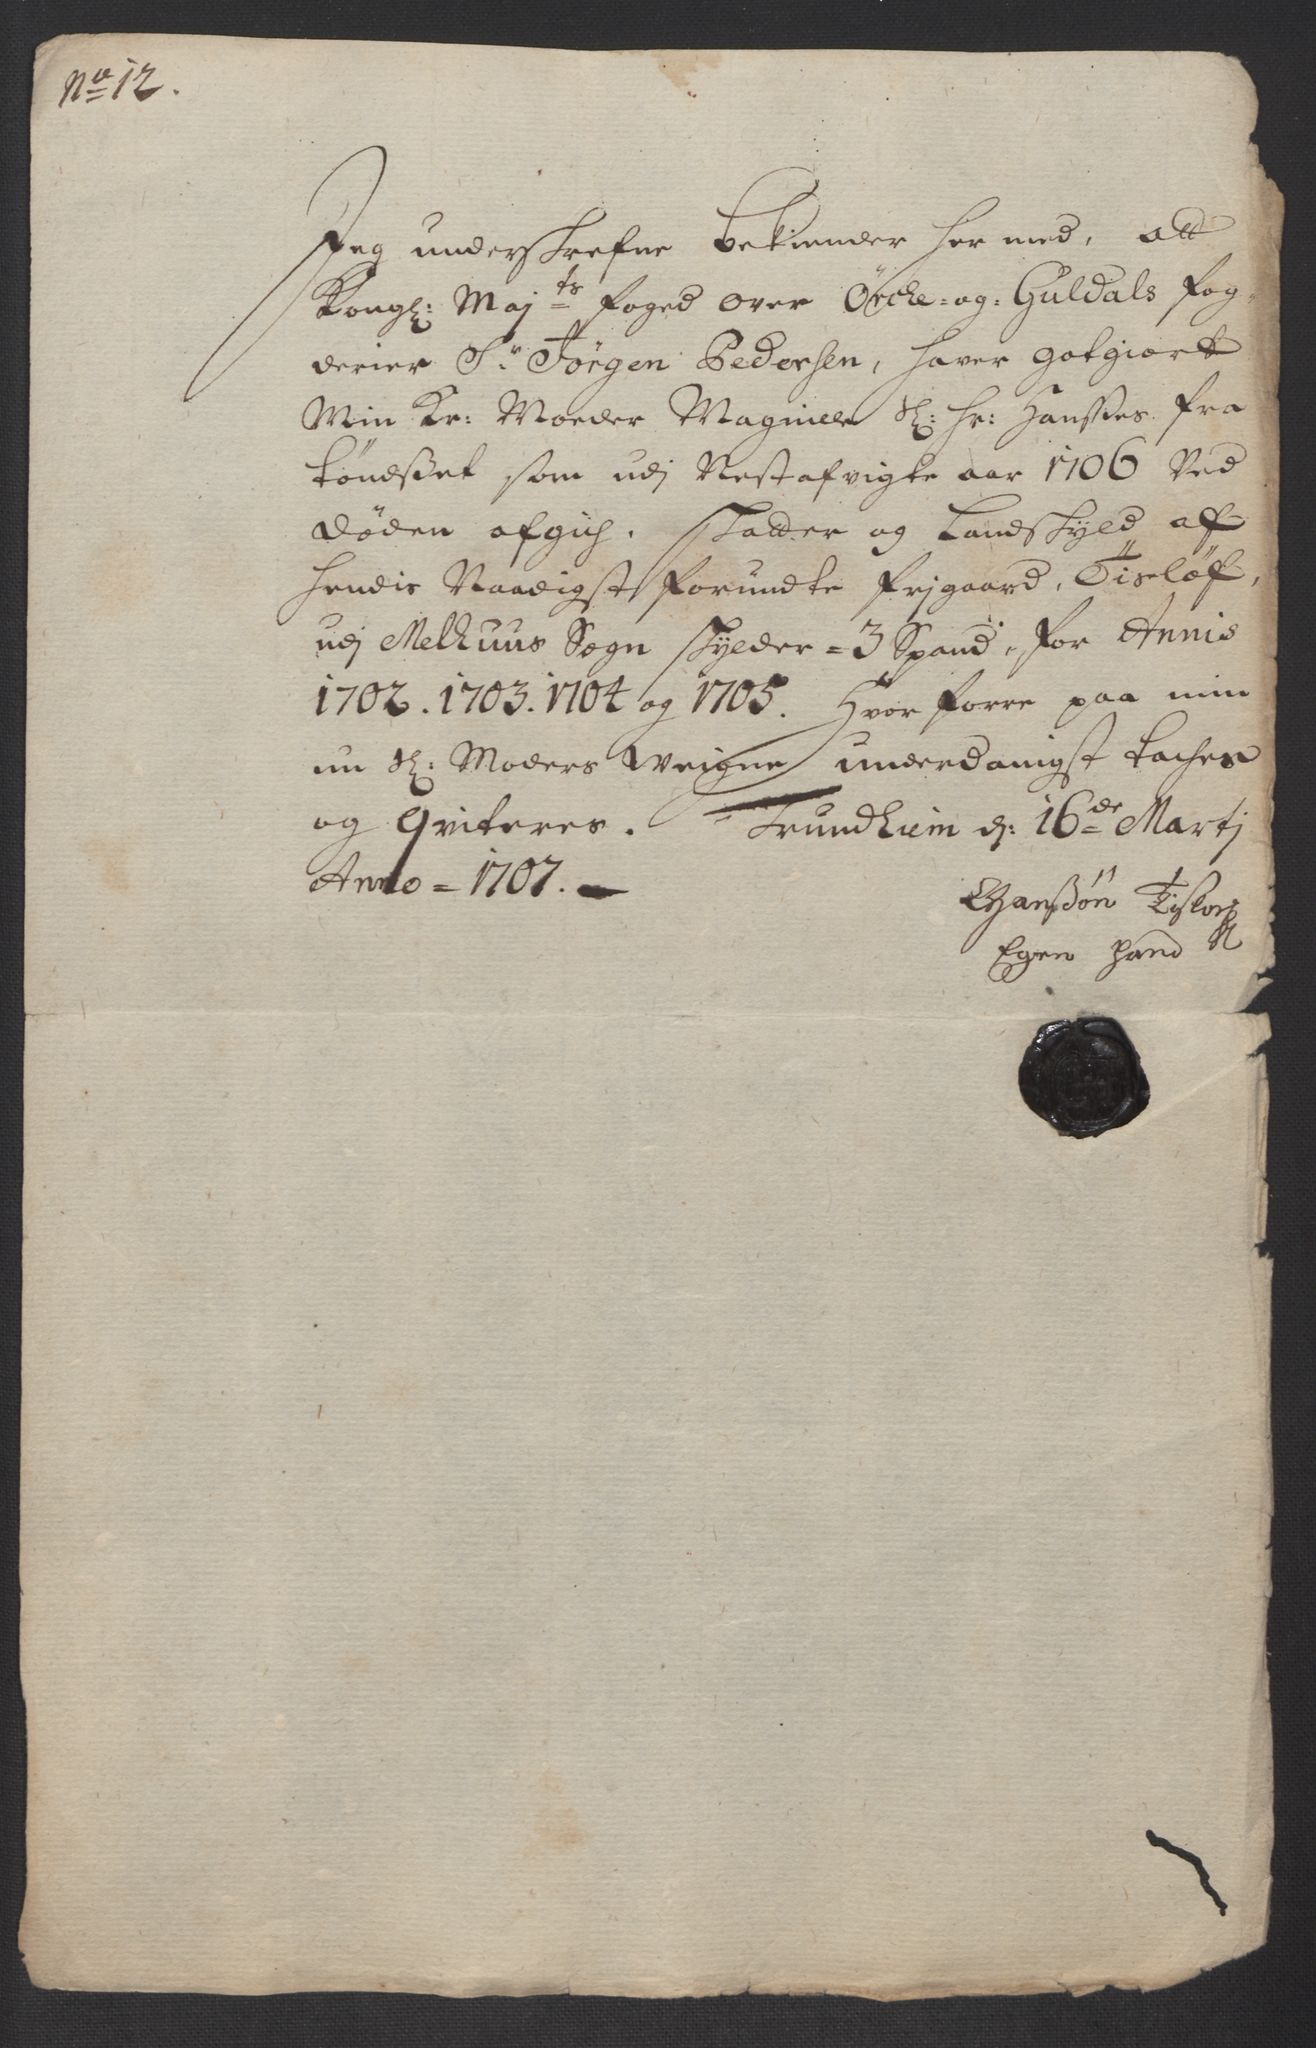 No 12.
Jeg underskrefne bekiender her med, att
Kongl: Maj ts foged over Örche- og: Guldals fog-
derier Sr Jörgen Pedersen, haver godtgiortt
Min Kr: Moeder Magnille Sl: Hr: Hansses fra
Töndset som udj Nest afvigte aar 1706 Ved
döden afgich. skatter og Landskyld af
hendis Naadigst forundte frjgaard, Tisløf,
udj Melhuus Sogn skylder = 3 Spand, for Annis
1702. 1703. 1704 og 1705. Hvor forre paa min
nu Sl: Moders Weigne underdanigst taches
og Qviteres. Trundhiem d: 16de Martj
Anno = 1707.
Hansßön
Egen Hand